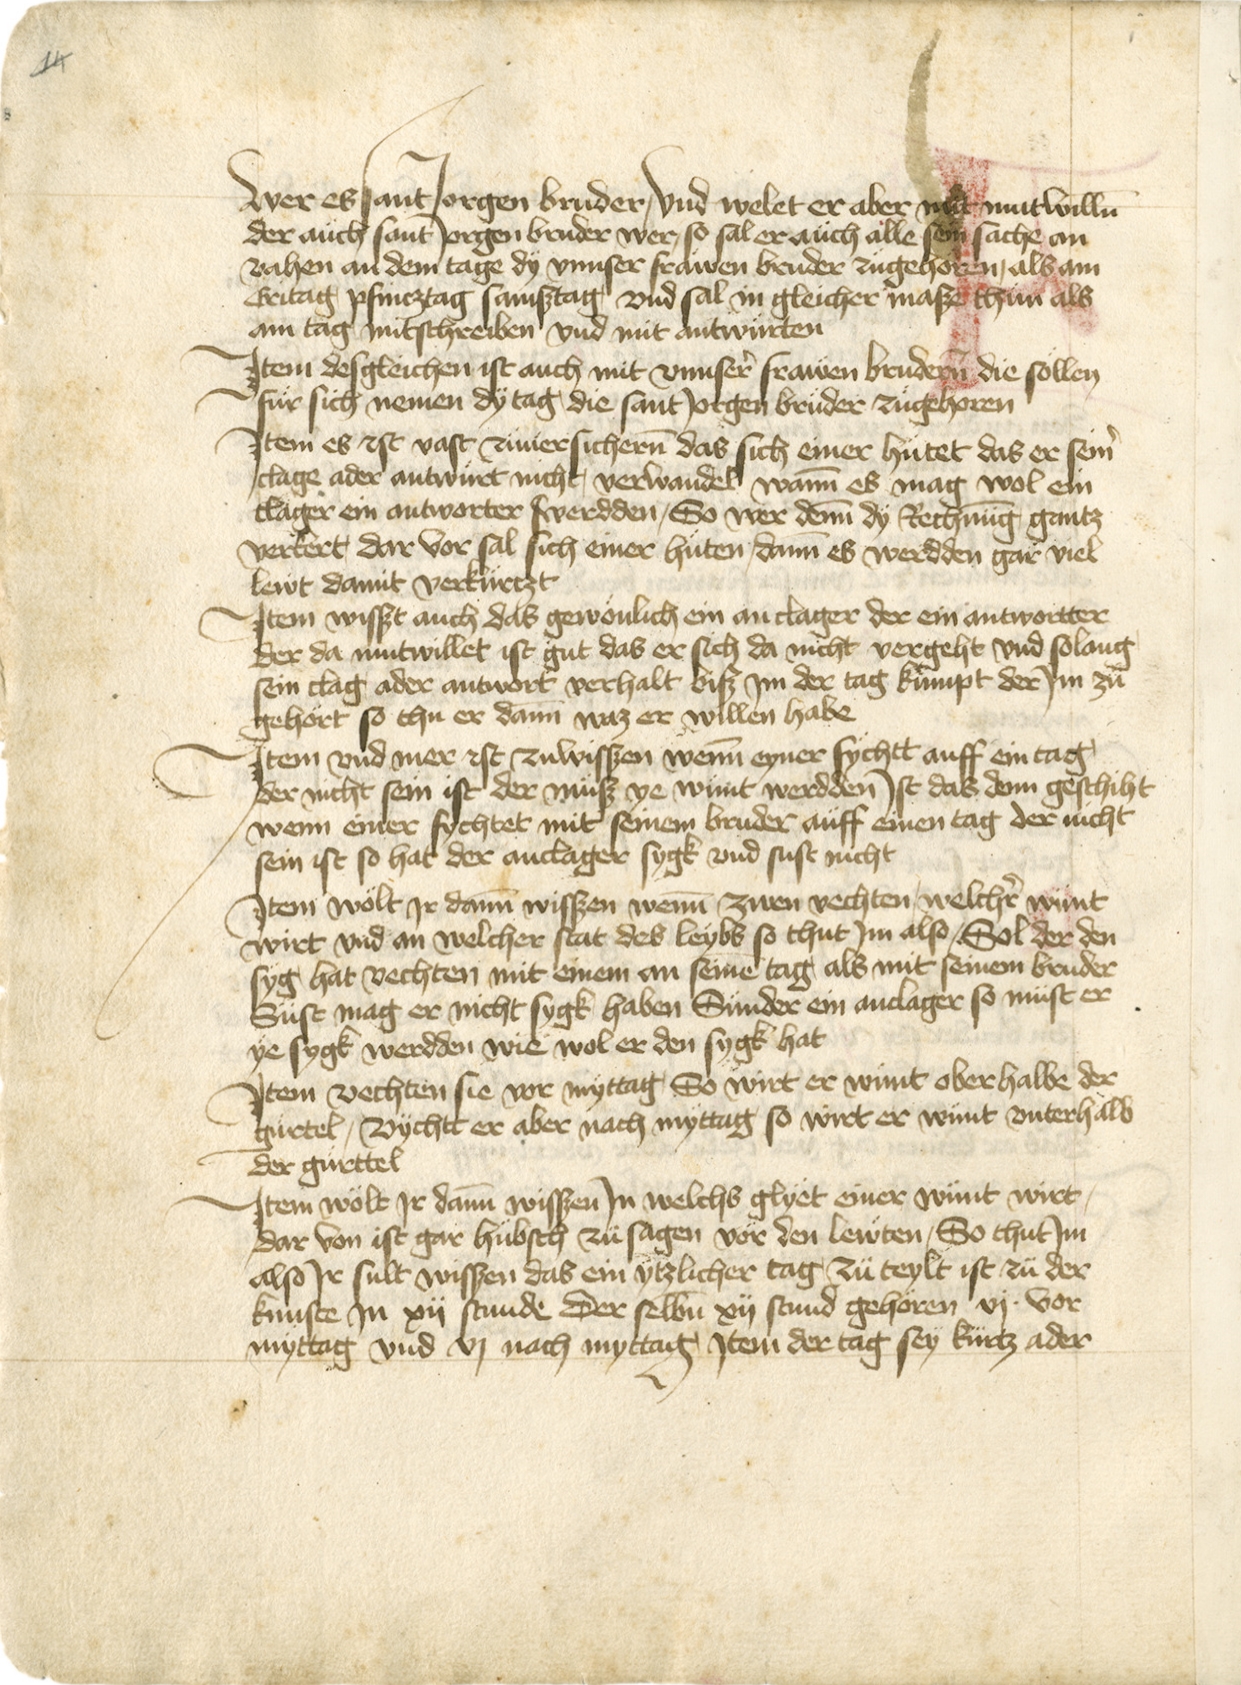 14
Wer es sant Jorgen bruder / Vnd welet er aber mit mutwilln̄
der auch sant Jorgen bruder wer, so sal er auch alle sein sache an
vahen an dem tage dÿ vnnser frawen bruder zugehoren, als am
Eritag pfincztag samßtag vnd sal in gleicher masze thun als
am tag mitschreiben vnd mit antwurten
Item desgleichen ist auch mit vnnser̄ frawen brudern̄ die sollen
fur sich nemen dÿ tag die sant Jorgen bruder zugehoren
Item es ist vast zuuersichern̄ das sich einer hutet das er sein̄
clage ader antwurt nicht verwandel wann̄ es mag wol ein
clager ein antworter werdden / So wer denn̄ dÿ Rechnūg gantz
verkert dar vor sal sich einer huten / dann̄ es werdden gar viel
lewt damit verkurtzt
Item wisszt auch das gewonlich ein anclager der ein antwortter
der da mutwillet ist gut das er sich da nicht vergeht vnd solang
sein clag ader antwort verhalt bisz Im der tag kumpt der Im zu
gehort so thu er dann̄ waz er willen habe
Item vnd mer ist zuwisszen wenn̄ eyner fychtt auff ein tag
der nicht sein ist der musz ye wunt werdden Ist das denn geschiht
wenn einer fychtet mit seinem bruder auff einen tag der nicht
sein ist so hat der anclager sygk vnd sust nicht
Item wolt Ir dann̄ wisszen wenn̄ zwen vechten, welcher̄ wunt
wirt vnd an welcher stat des leybs so thut Im also / Sol der den
syg hat vechten mit einem an seine tag als mit seinem bruder
Sust mag er nicht sygk haben Sunder ein anclager so must er
ye sygk werdden wie wol er den sygk hat
Item vechten sie vor myttag So wirt er wunt oberhalbe der
gurtel / Vychtt er aber nach myttag so wirt er wunt vnterhalb
der gurttel
Item wolt Ir dann̄ wisszen In welchs glyet einer wunt wirt /
dar von ist gar hubsch zu sagen vor den lewten / So thut Im
also Ir sult wissen das ein ytzlicher tag zu teylt ist zu der
kunste In xij stunde Der selbn̄ xij stund gehoren vj. vor
myttag vnd vj nach myttag Item der tag sey kurtz ader